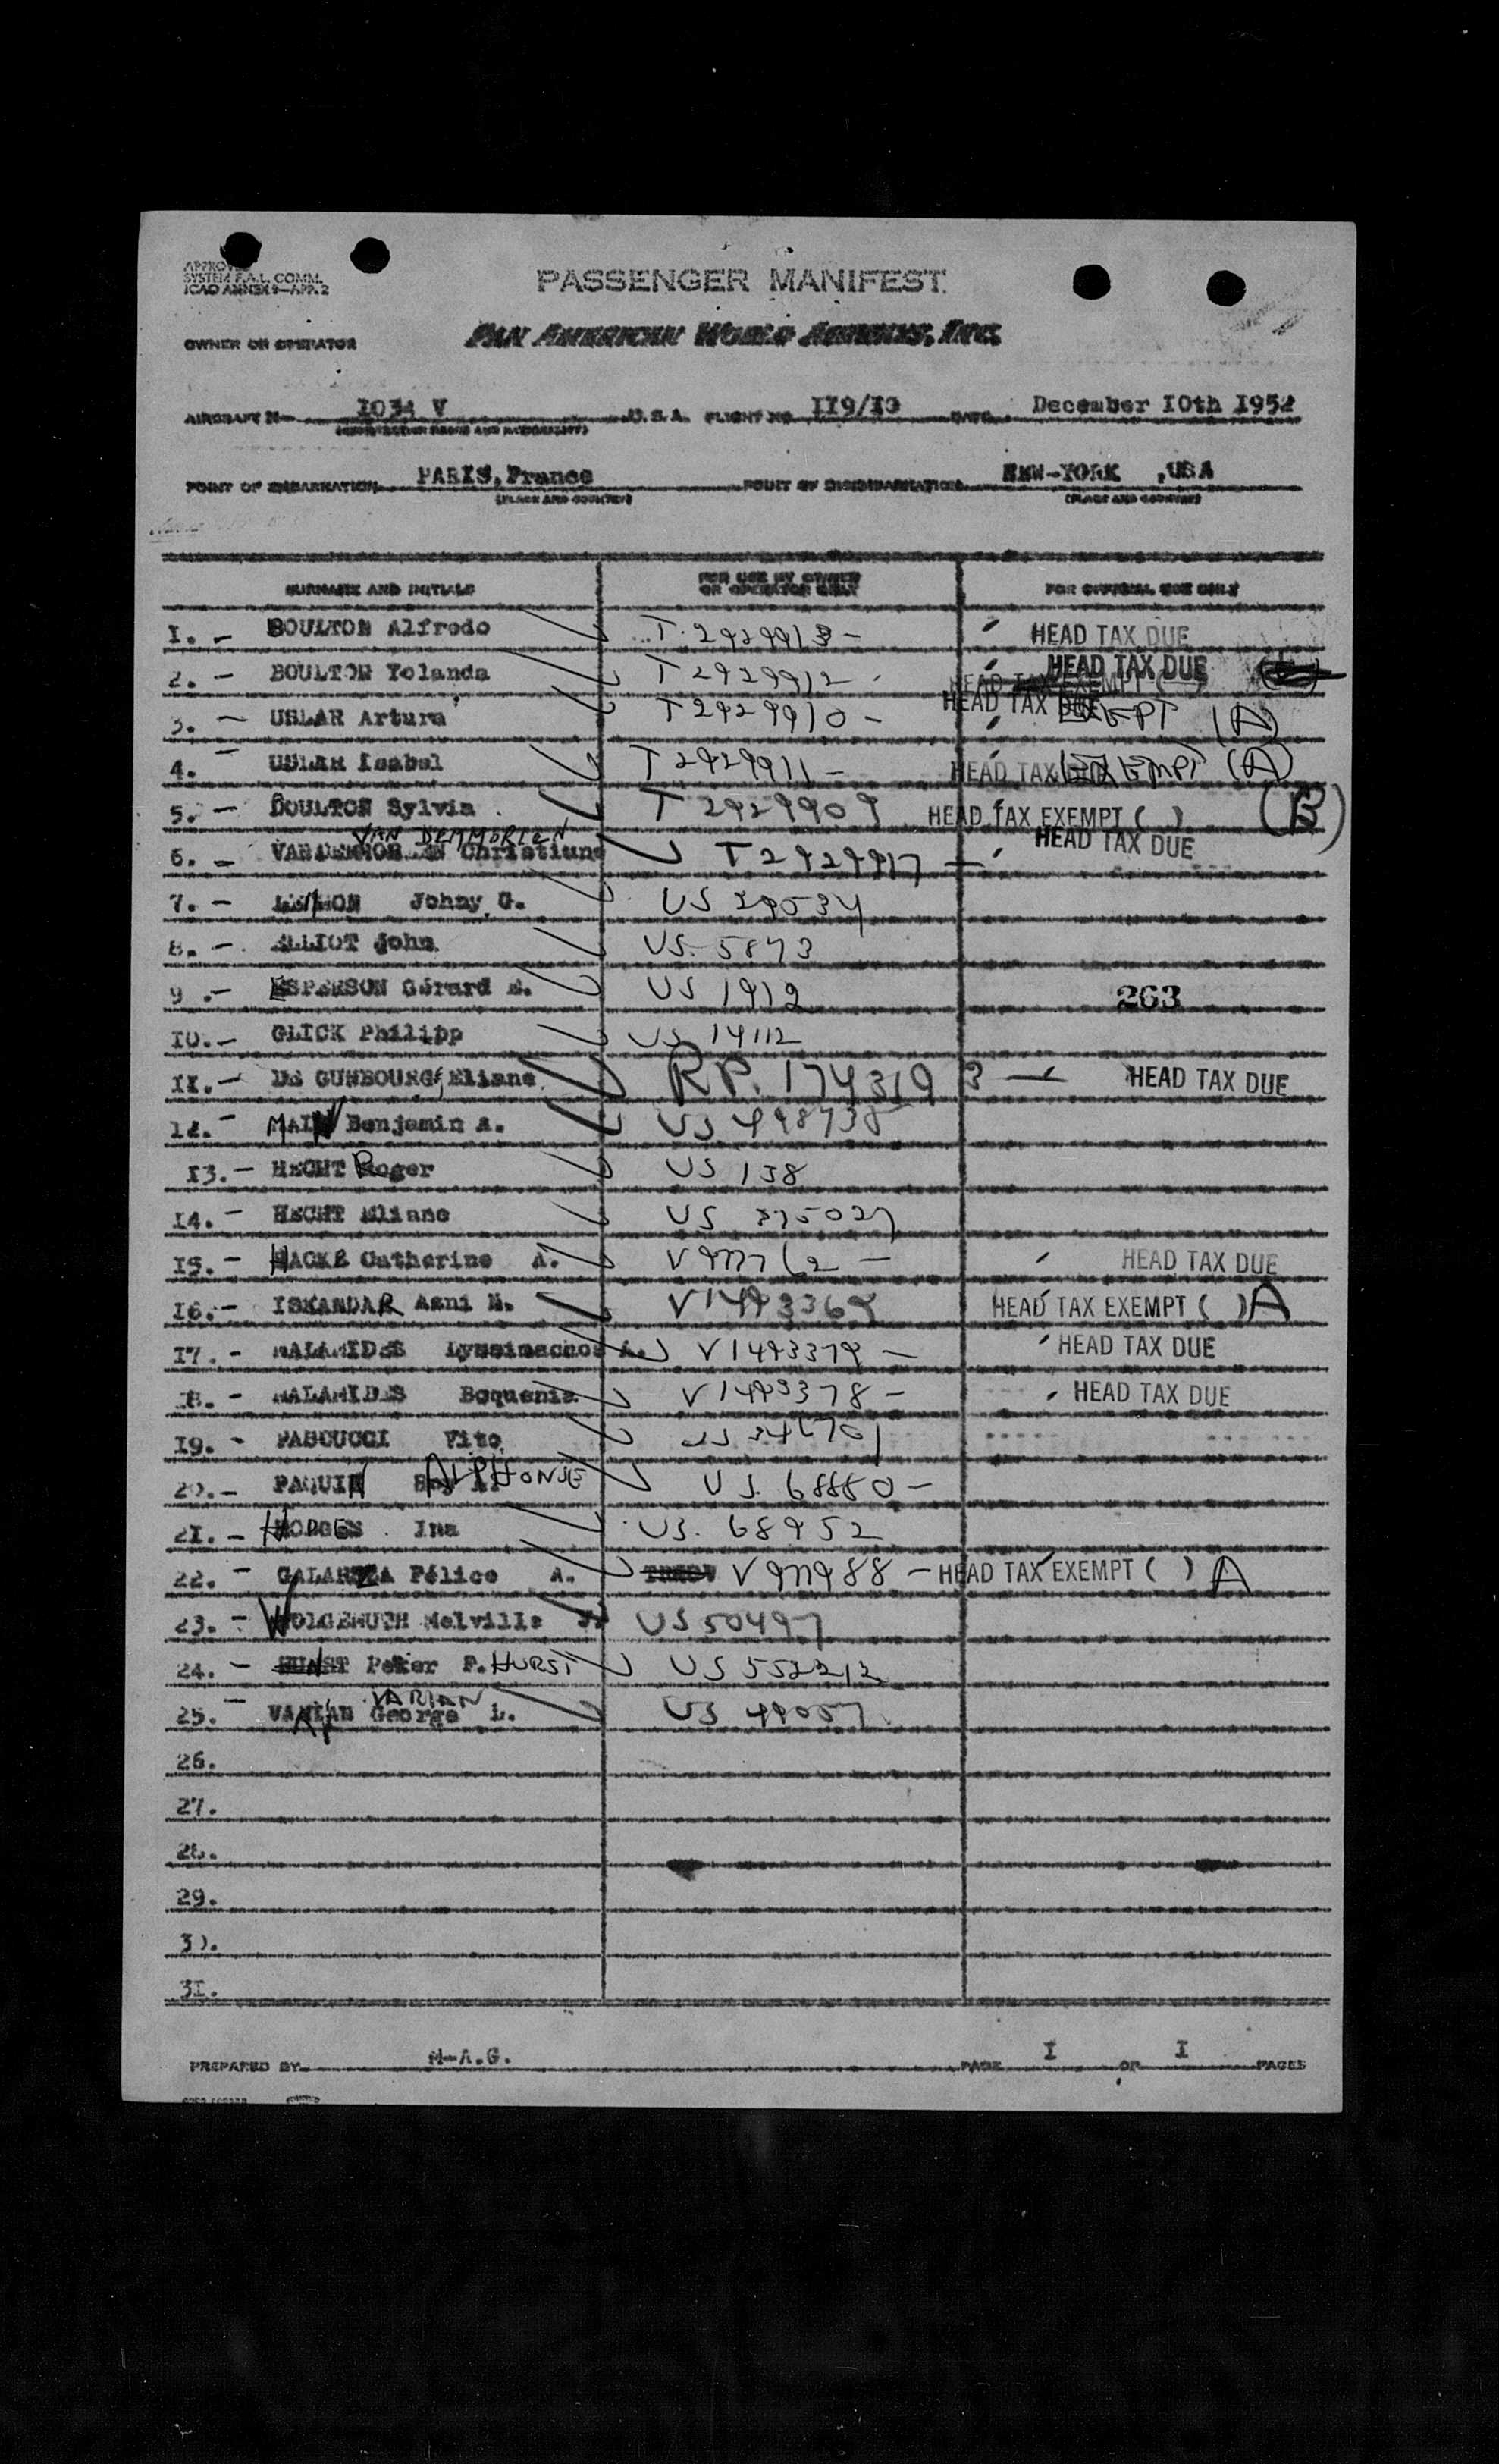 APPROVED
SYSTEM F.A.L. COMM.
ICAO ANNEX 9—APP. 2
PASSENGER MANIFEST
OWNER OR OPERATOR PAN AMERICAN WORLD AIRWAYS, INC.
AIRCRAFT N 1034 V U.S.A. FLIGHT NO. II9/I0 DATE December I0th I952
POINT OF EMBARKATION PARIS, France POINT OF DISEMBARKATION NEW-YORK ,USA
(PLACE AND COUNTRY) (PLACE AND COUNTRY)
SURNAME AND INITIALS FOR USE BY OWNER OR OPERATOR ONLY FOR OFFICIAL USE ONLY
I. - BOULTON Alfredo T. 2929913 - HEAD TAX DUE
2. - BOULTON Yolanda T 2929912 - HEAD TAX DUE
HEAD TAX EXEMPT ( )
3. - USLAR Arturo T 2929910 - HEAD TAX DUE EXEMPT (A)
4. - USLAR Isabel T 2929911 - HEAD TAX EXEMPT (A)
5. - BOULTON Sylvia T 2929909 HEAD TAX EXEMPT ( ) (B)
VAN DERMORLEN
6. - Christiane T 2929917 - HEAD TAX DUE
7. - Johny G. US 29034
8. - ELLIOT John US. 5873
9 .- ESPERSON Gérard E. US 1912
263
I0.- GLICK Philipp US 14112
II.- DE GUNBOURG, Eliane RP. 1743193 - HEAD TAX DUE
I2. - MAIN Benjamin A. US 498735
I3.- HECHT Roger US 138
I4. - HECHT Eliane US 375027
I5. - HACKE Catherine A. HEAD TAX DUE
I6.- ISKANDAR Asni N. V1493369 HEAD TAX EXEMPT ( ) A
I7. - MALAMIDES Lyssimachos A. V1493379 - HEAD TAX DUE
I8. - MALAMIDES V1493378 - HEAD TAX DUE
I9. - PASCUCCI Vito
20.- PAQUIN ALPHONSE US. 68880 -
2I. - HODGES Ina US. 68952
22. - Félice A. V 977988 - HEAD TAX EXEMPT ( ) A
23. - WOLGEMUTH Melville US 50497
24. - Peter F. HURST US 552212
VARIAN
25. - George L. US 49057
26.
27.
28.
29.
30.
3I.
PREPARED BY M-A.G. PAGE I OF I PAGES